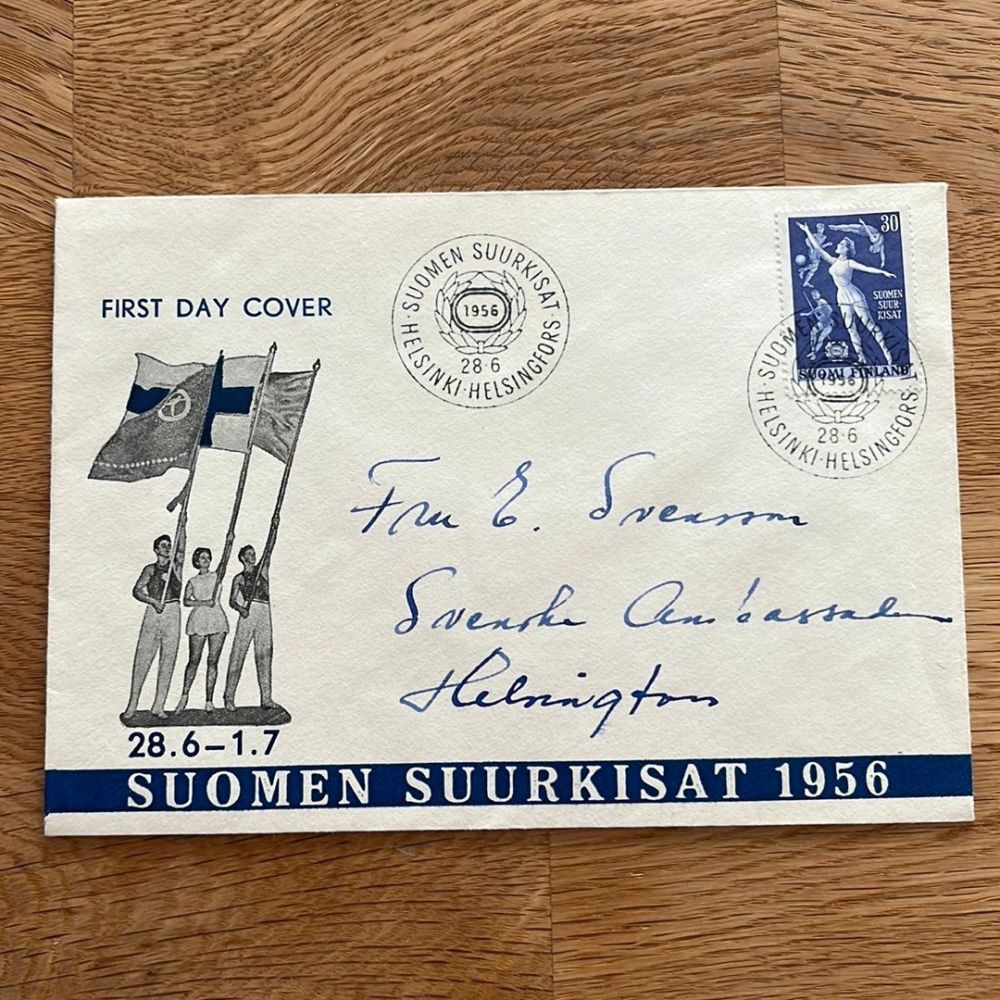 FIRST DAY COVER
SUOMEN SUURKISAT
1956
28·6
HELSINKI·HELSINGFORS
30
SUOMEN
SUUR-
KISAT
SUOMI FINLAND
SUOMEN SUURKISAT
1956
28·6
HELSINKI·HELSINGFORS
Fru E. Svensson
Svenska Ambassaden
Helsingfors
28.6–1.7
SUOMEN SUURKISAT 1956